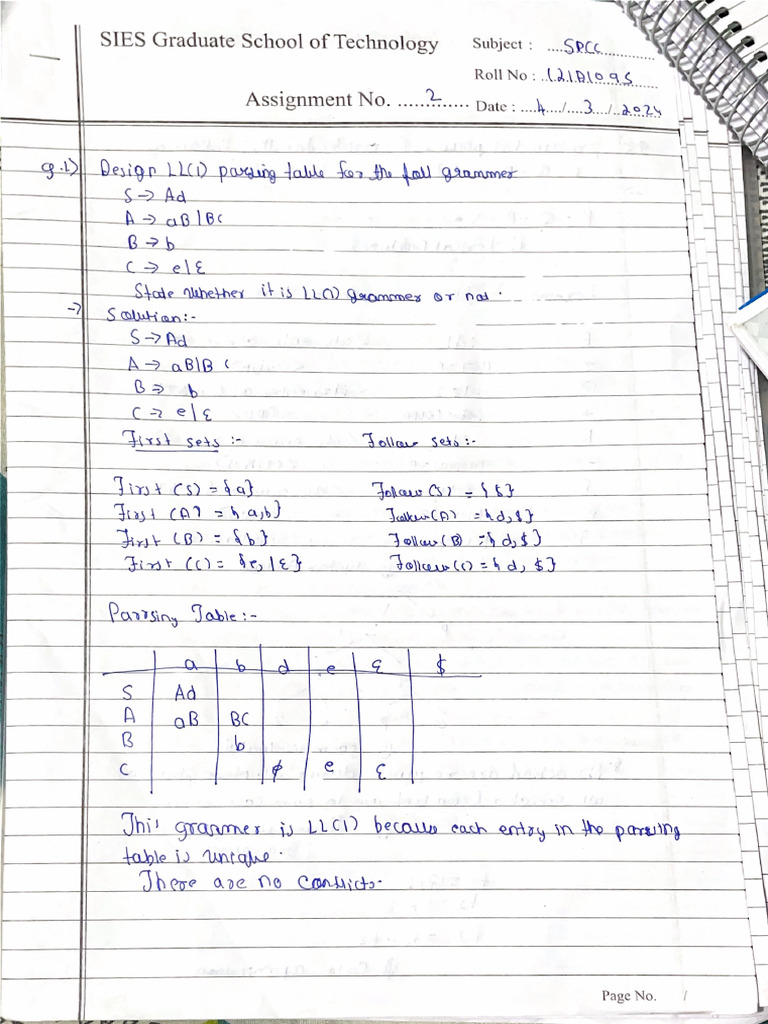 SIES Graduate School of Technology
Subject : SPCC
Roll No : 121A1095
Assignment No. 2
Date : 4/3/2024
Q.1) Design LL(1) parsing table for the foll grammer
S → Ad
A → aB|BC
B → b
C → e|ε
State whether it is LL(1) grammer or not.
→ Solution:-
S → Ad
A → aB|B C
B → b
C → e|ε
First sets :- Follow sets:-
First (S) = {a} Follow(S) = {$}
First (A) = {a,b} Follow(A) = {d,$}
First (B) = {b} Follow(B) = {d,$}
First (C) = {e,|ε} Follow(C) = {d, $}
Parrsing Table:-
a b d e ε $
S Ad
A aB BC
B b
C ¢ e ε
This grammer is LL(1) because each entry in the parsing
table is unique.
There are no conflicts.
Page No. 1